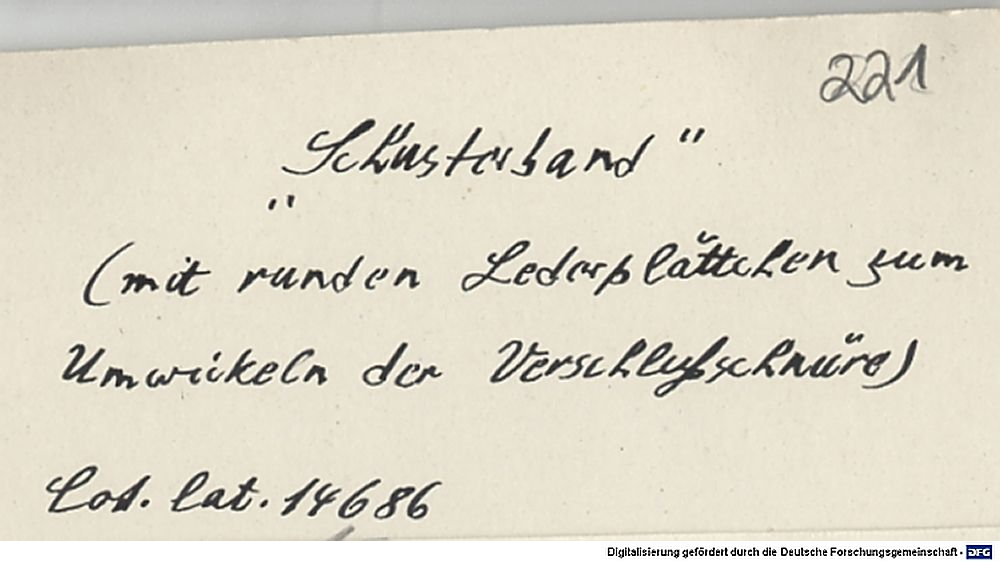 221
„Schusterband“
(mit runden Lederplättchen zum
Umwickeln der Verschlußschnüre)
Cod. lat. 14686
Digitalisierung gefördert durch die Deutsche Forschungsgemeinschaft - DFG